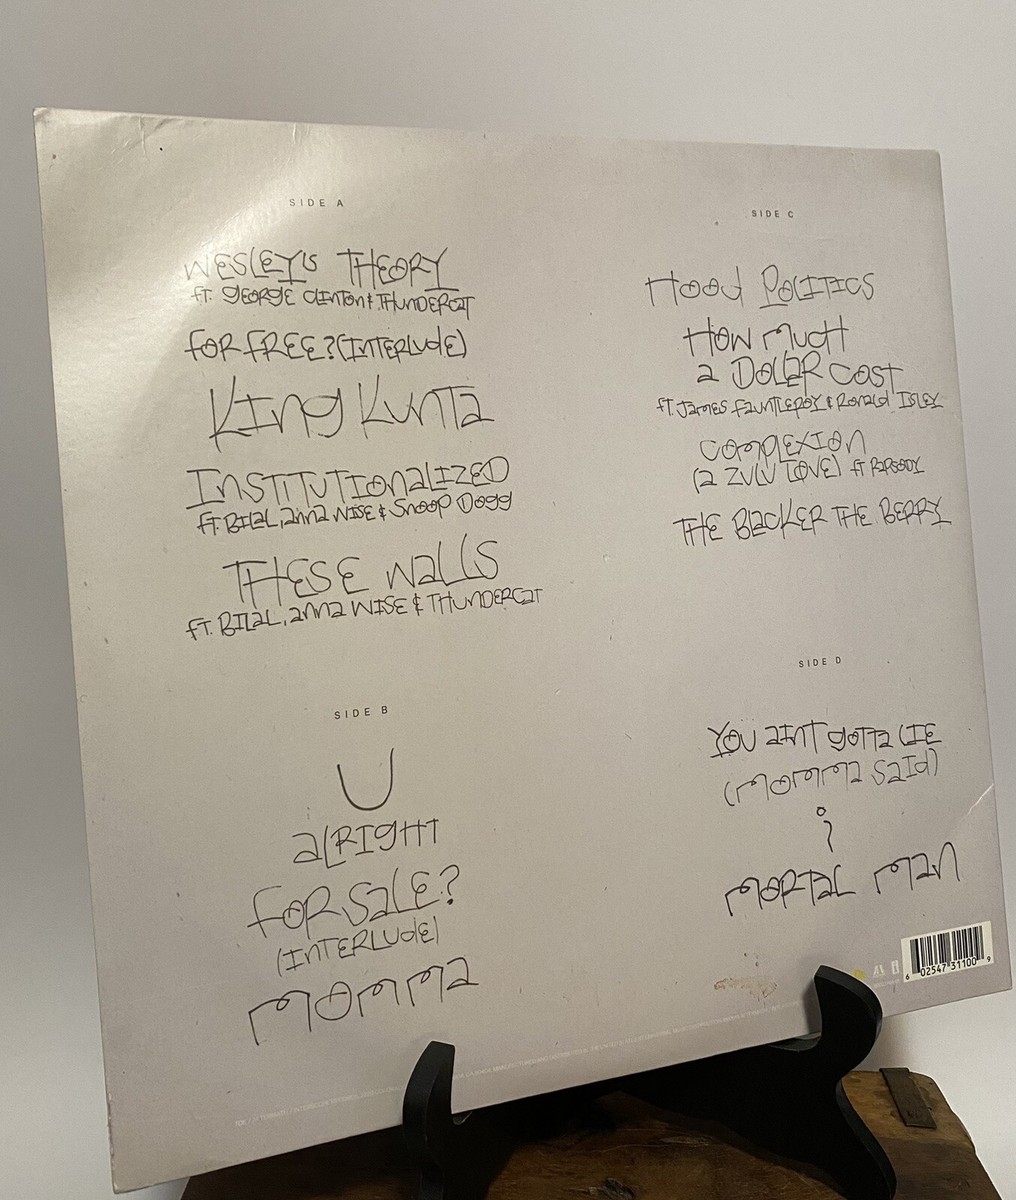 SIDE A
WESLEY'S THEORY
ft. GEORGE CLINTON & THUNDERCAT
FOR FREE? (INTERLUDE)
KING KUNTA
INSTITUTIONALIZED
ft. BILAL, anna WISE & Snoop Dogg
THESE WALLS
ft. BILAL, anna WISE & THUNDERCAT
SIDE B
U
aLRIGHT
FOR SALE?
(INTERLUDE)
MOMMA
SIDE C
HOOD POLITICS
HOW MUCH
a DOLLAR COST
ft. JAMES FAUNTLEROY & RONALD ISLEY
COMPLEXION
(a ZULU LOVE) ft RAPSODY
THE BLACKER THE BERRY
SIDE D
YOU aint gotta LIE
(MOMMA SAID)
i
MORTAL MAN
6 02547 31100 9